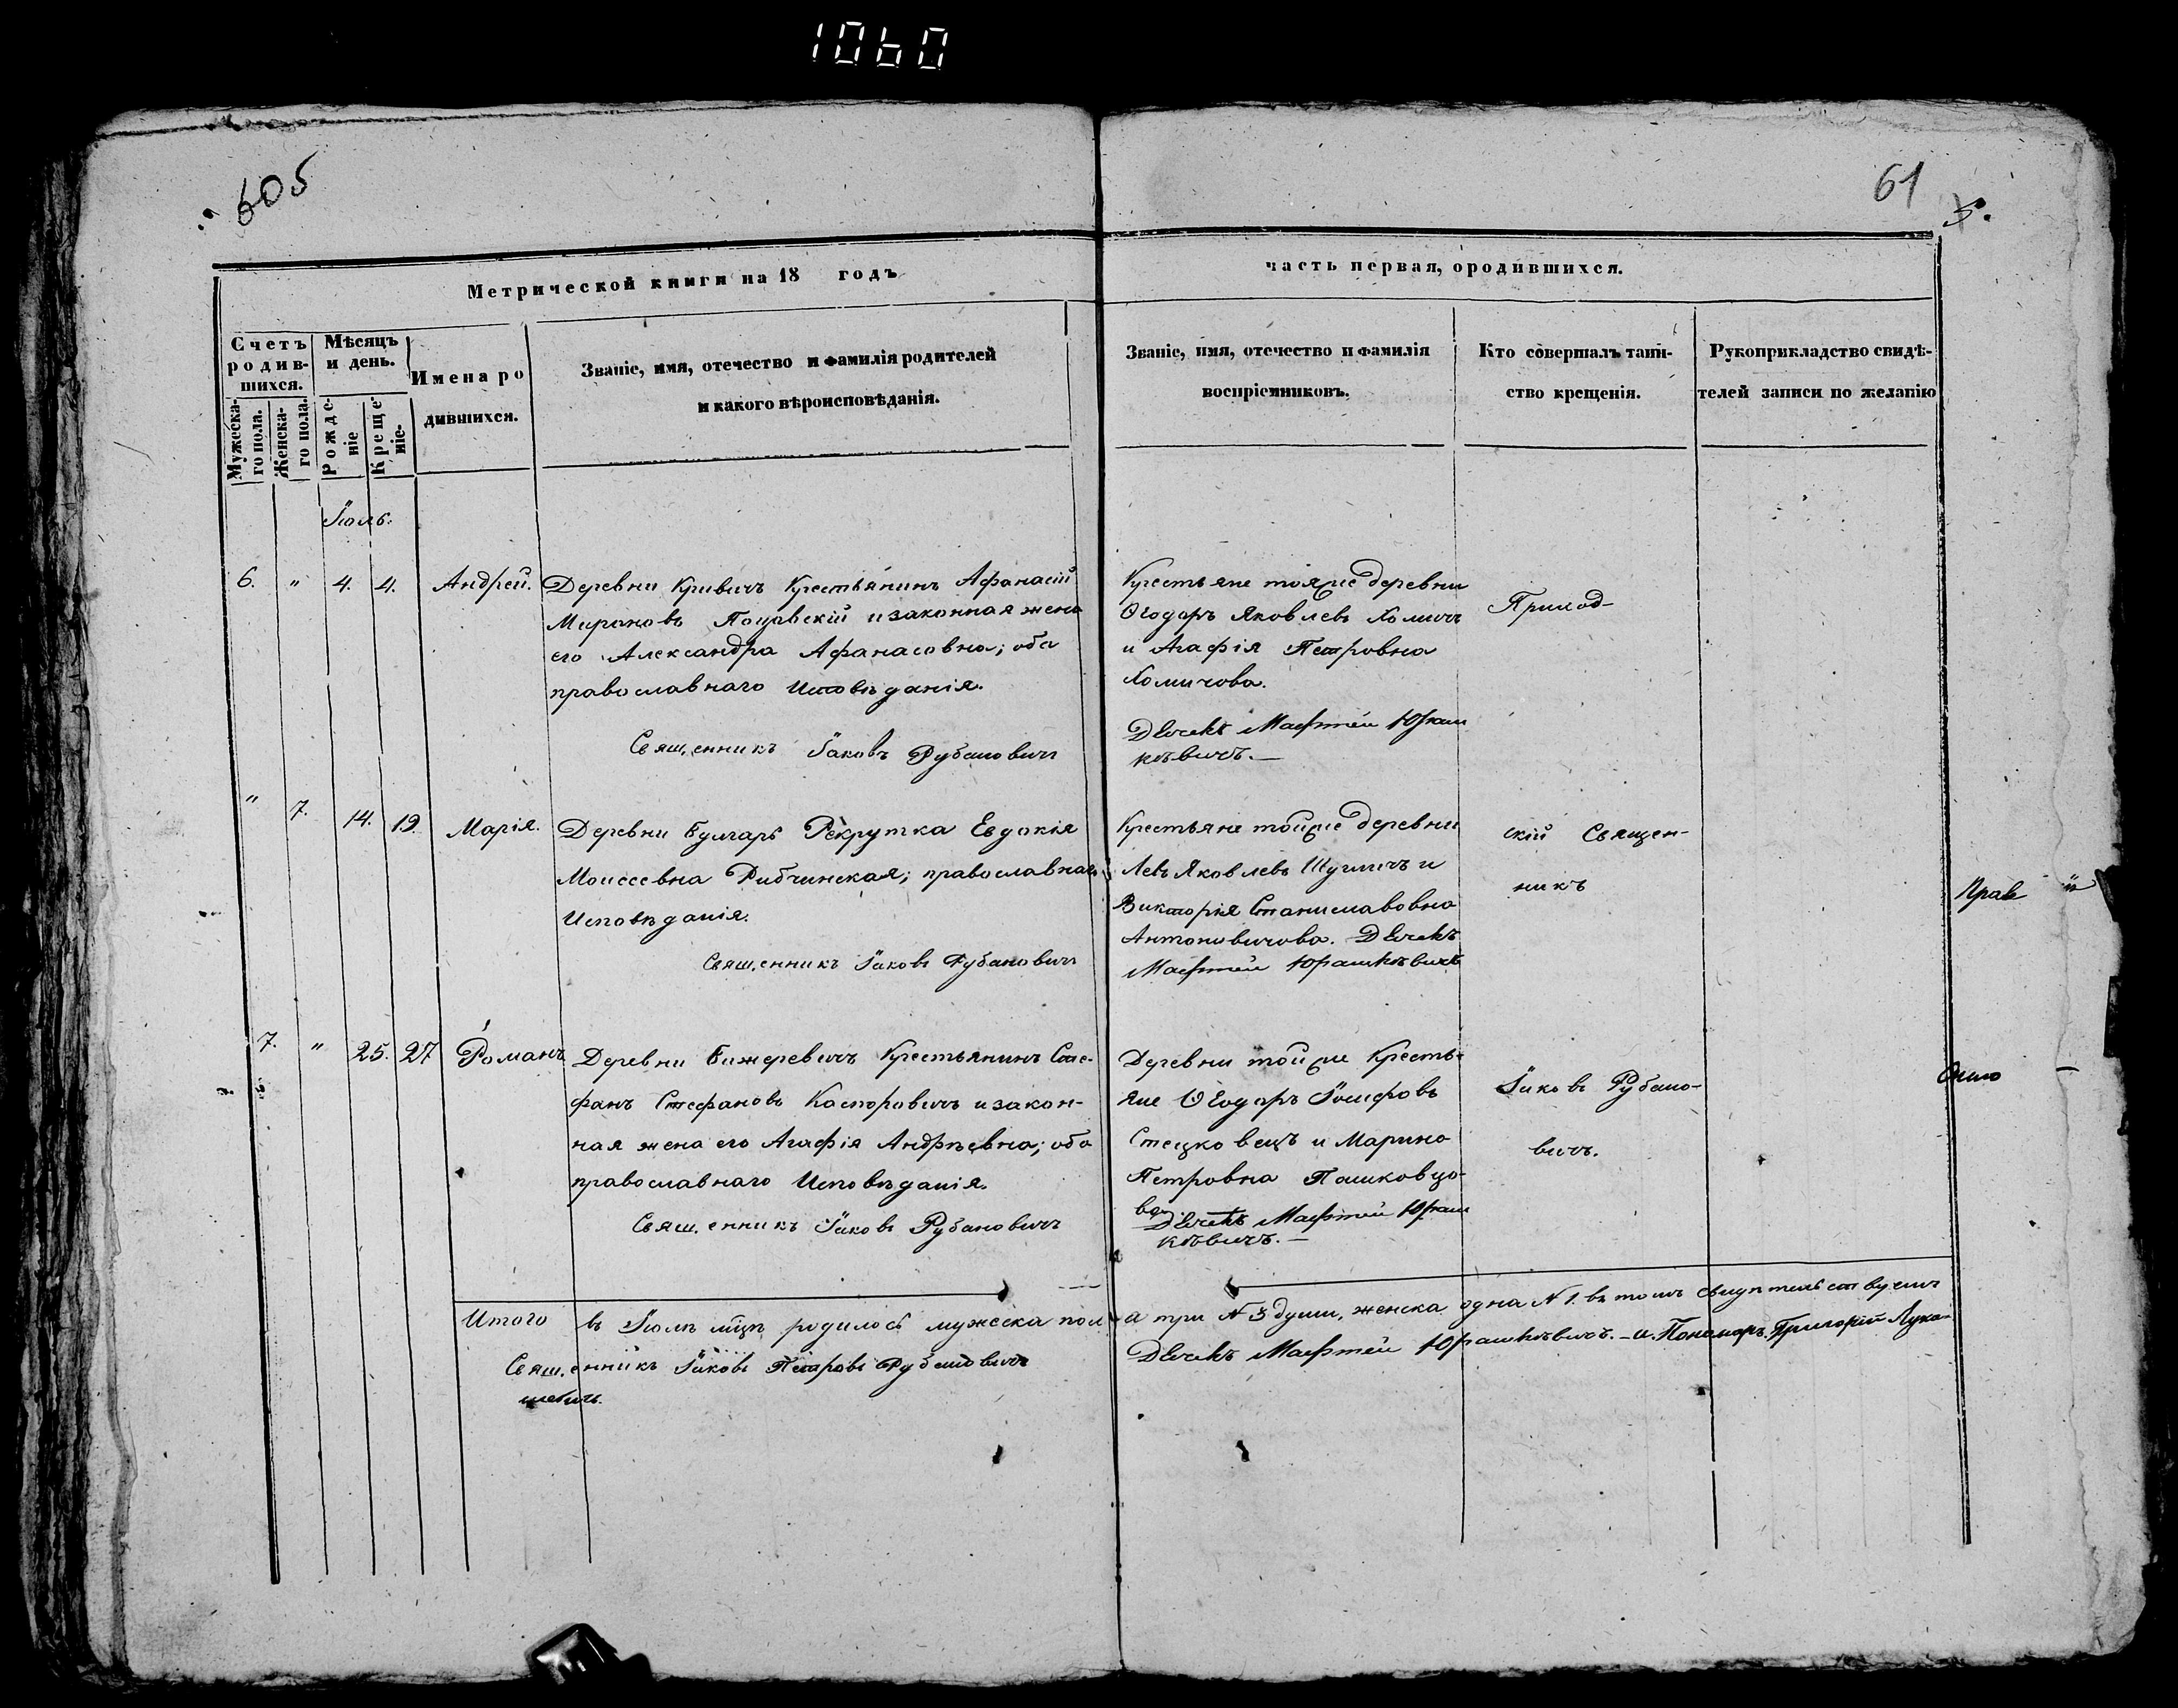 1060
605
61
5.
Метрической книги на 18 годъ
часть первая, ородившихся.
Счетъ родив-шихся.
Мѣсяцъ и день.
Имена ро
дившихся.
Мужеска-го пола.
Женска-го пола.
Рожде-ніе
Креще-ніе.
Званіе, имя, отечество и фамилія родителей
и какого вѣроисповѣданія.
Званіе, имя, отечество и фамилія
воспріемниковъ.
Кто совершалъ таин-
ство крещенія.
Рукоприкладство свидѣ-
телей записи по желанію
Іюль.
6. " 4. 4. Андрей.
Деревни Кривичъ Крестьянинъ Афанасій
Мироновъ и законная жена
его Александра Афанасовна; оба
православнаго Исповѣданія.
Священникъ Іаковъ Рубановичъ
Крестьяне тояже деревни
Ѳеодоръ Яковлевъ Хомичъ
и Агафія Петровна
Хомичова.
Дьячекъ Мафтей Юраш
кѣвичъ.—
Приход-
" 7. 14. 19. Марія.
Деревни Булгары Рекрутка Евдокія
Моисеевна Рибчинская; православнаго
Исповѣданія.
Священникъ Іаковъ Рубановичъ
Крестьяне тойже деревни
Левъ Яковлевъ и
Викторія Станиславовна
Антоновичова. Дьячекъ
Мафтей Юрашкѣвичъ
скій Священ-
никъ
7. " 25. 27 Романъ
Деревни Бижеревичъ Крестьянинъ Сте-
фанъ Стефановъ Касперовичъ и закон-
ная жена его Агафія Андрѣевна; оба
православнаго Исповѣданія.
Священникъ Іаковъ Рубановичъ
Деревни тойже Кресть-
яне Ѳеодоръ Іосифовъ
Стецковецъ и Марина
Петровна Пашковцо-
ва Дьячекъ Мафтей Юраш
кѣвичъ.—
Іаковъ Рубано-
вичъ.
Итого въ Іюлѣ мцѣ родилось мужеска пола три № 3 души, женска одна № 1. въ томъ свидѣтельствуемъ
Священникъ Іаковъ Петровъ Рубановичъ
Дьячекъ Мафтей Юрашкѣвичъ.— и. Пономаръ Григорій Лука-
шевичъ.